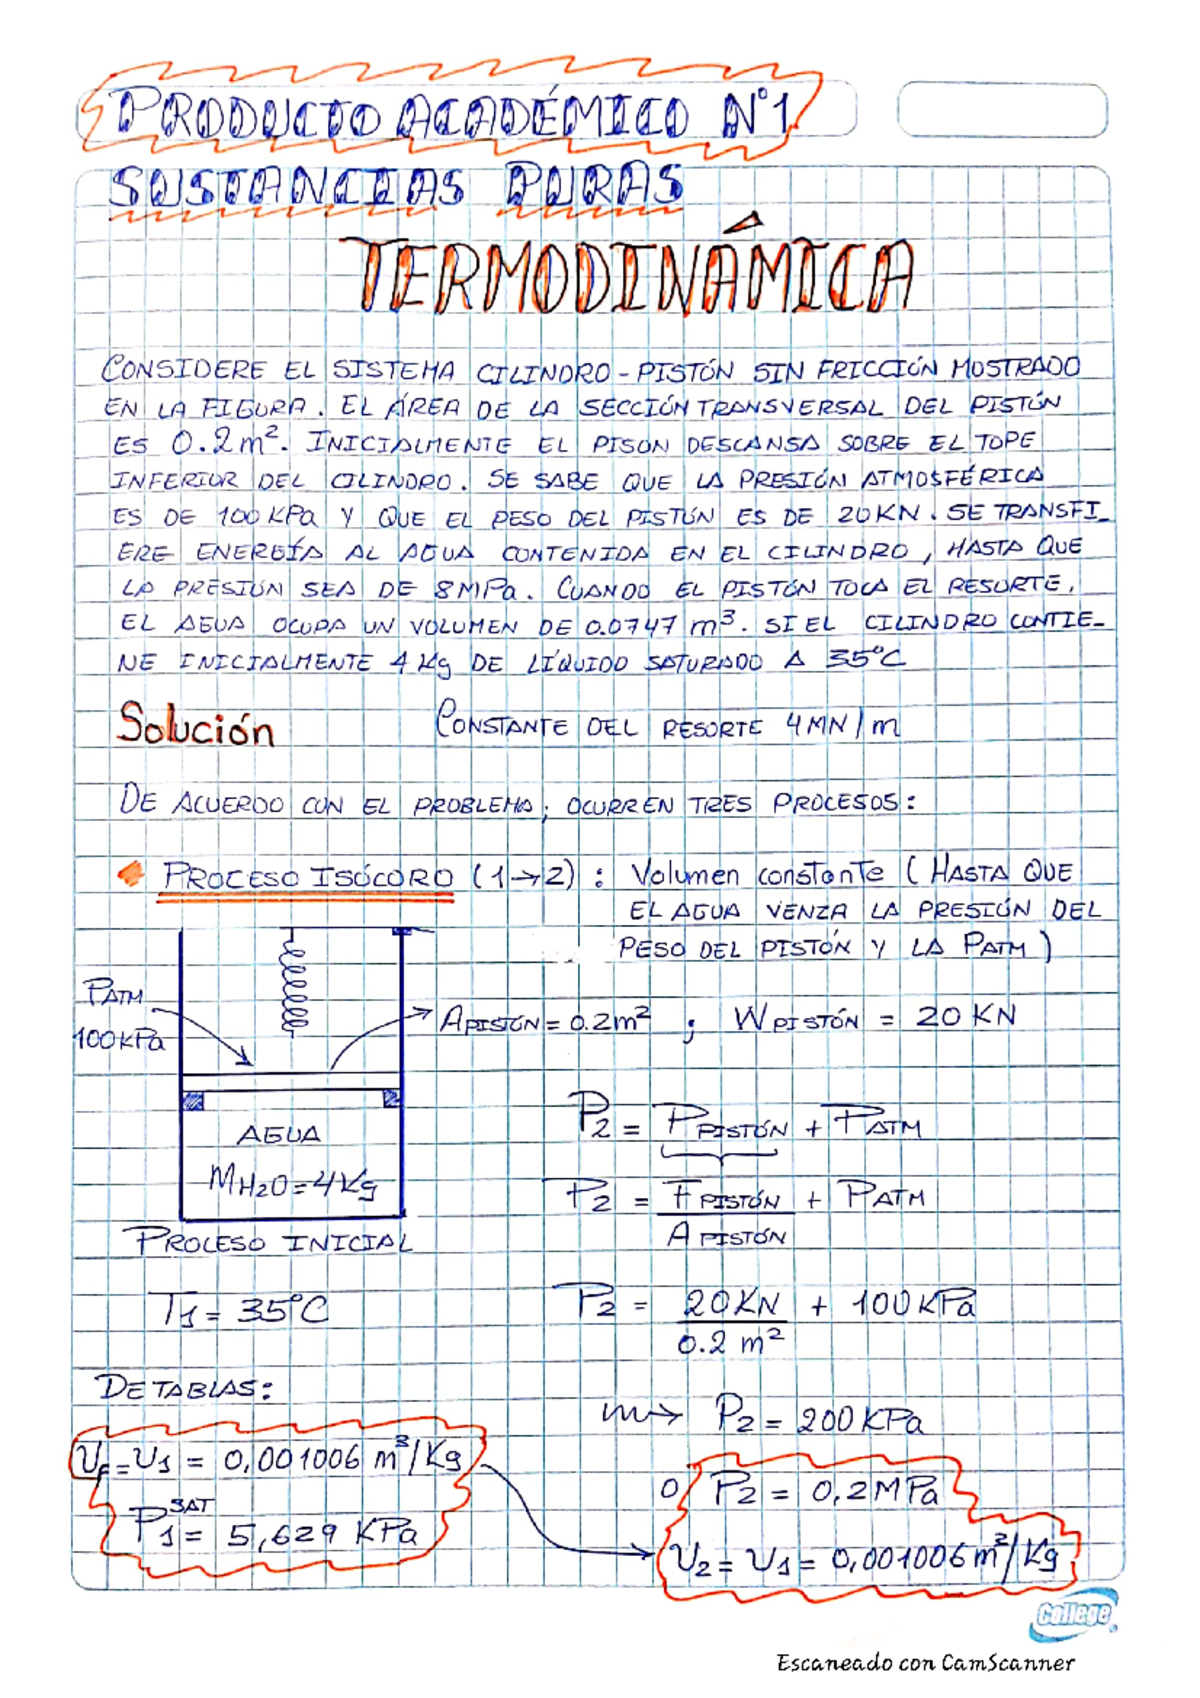 PRODUCTO ACADÉMICO N°1
SUSTANCIAS PURAS
TERMODINÁMICA
CONSIDERE EL SISTEMA CILINDRO-PISTÓN SIN FRICCIÓN MOSTRADO
EN LA FIGURA. EL ÁREA DE LA SECCIÓN TRANSVERSAL DEL PISTÓN
ES 0.2 m². INICIALMENTE EL PISON DESCANSA SOBRE EL TOPE
INFERIOR DEL CILINDRO. SE SABE QUE LA PRESIÓN ATMOSFÉRICA
ES DE 100 KPa Y QUE EL PESO DEL PISTÓN ES DE 20KN. SE TRANSFI_
ERE ENERGÍA AL AGUA CONTENIDA EN EL CILINDRO, HASTA QUE
LA PRESIÓN SEA DE 8MPa. CUANDO EL PISTÓN TOCA EL RESORTE,
EL AGUA OCUPA UN VOLUMEN DE 0.0747 m³. SI EL CILINDRO CONTIE_
NE INICIALMENTE 4 Kg DE LÍQUIDO SATURADO A 35°C
Solución CONSTANTE DEL RESORTE 4MN/m
DE ACUERDO CON EL PROBLEMA; OCURREN TRES PROCESOS:
PROCESO ISÓCORO (1→2): Volumen constante (HASTA QUE
EL AGUA VENZA LA PRESIÓN DEL
PESO DEL PISTÓN Y LA PATM)
PATM
100KPa
APISTÓN = 0.2m² ; WPISTÓN = 20 KN
AGUA
MH2O = 4Kg
PROCESO INICIAL
P2 = PPISTÓN + PATM
P2 = FPISTÓN / APISTÓN + PATM
T1 = 35°C
P2 = 20KN / 0.2 m² + 100KPa
DE TABLAS:
P2 = 200KPa
Uf = U1 = 0,001006 m³/Kg
P1 SAT = 5,629 KPa
O P2 = 0,2MPa
U2 = U1 = 0,001006 m³/Kg
College
Escaneado con CamScanner